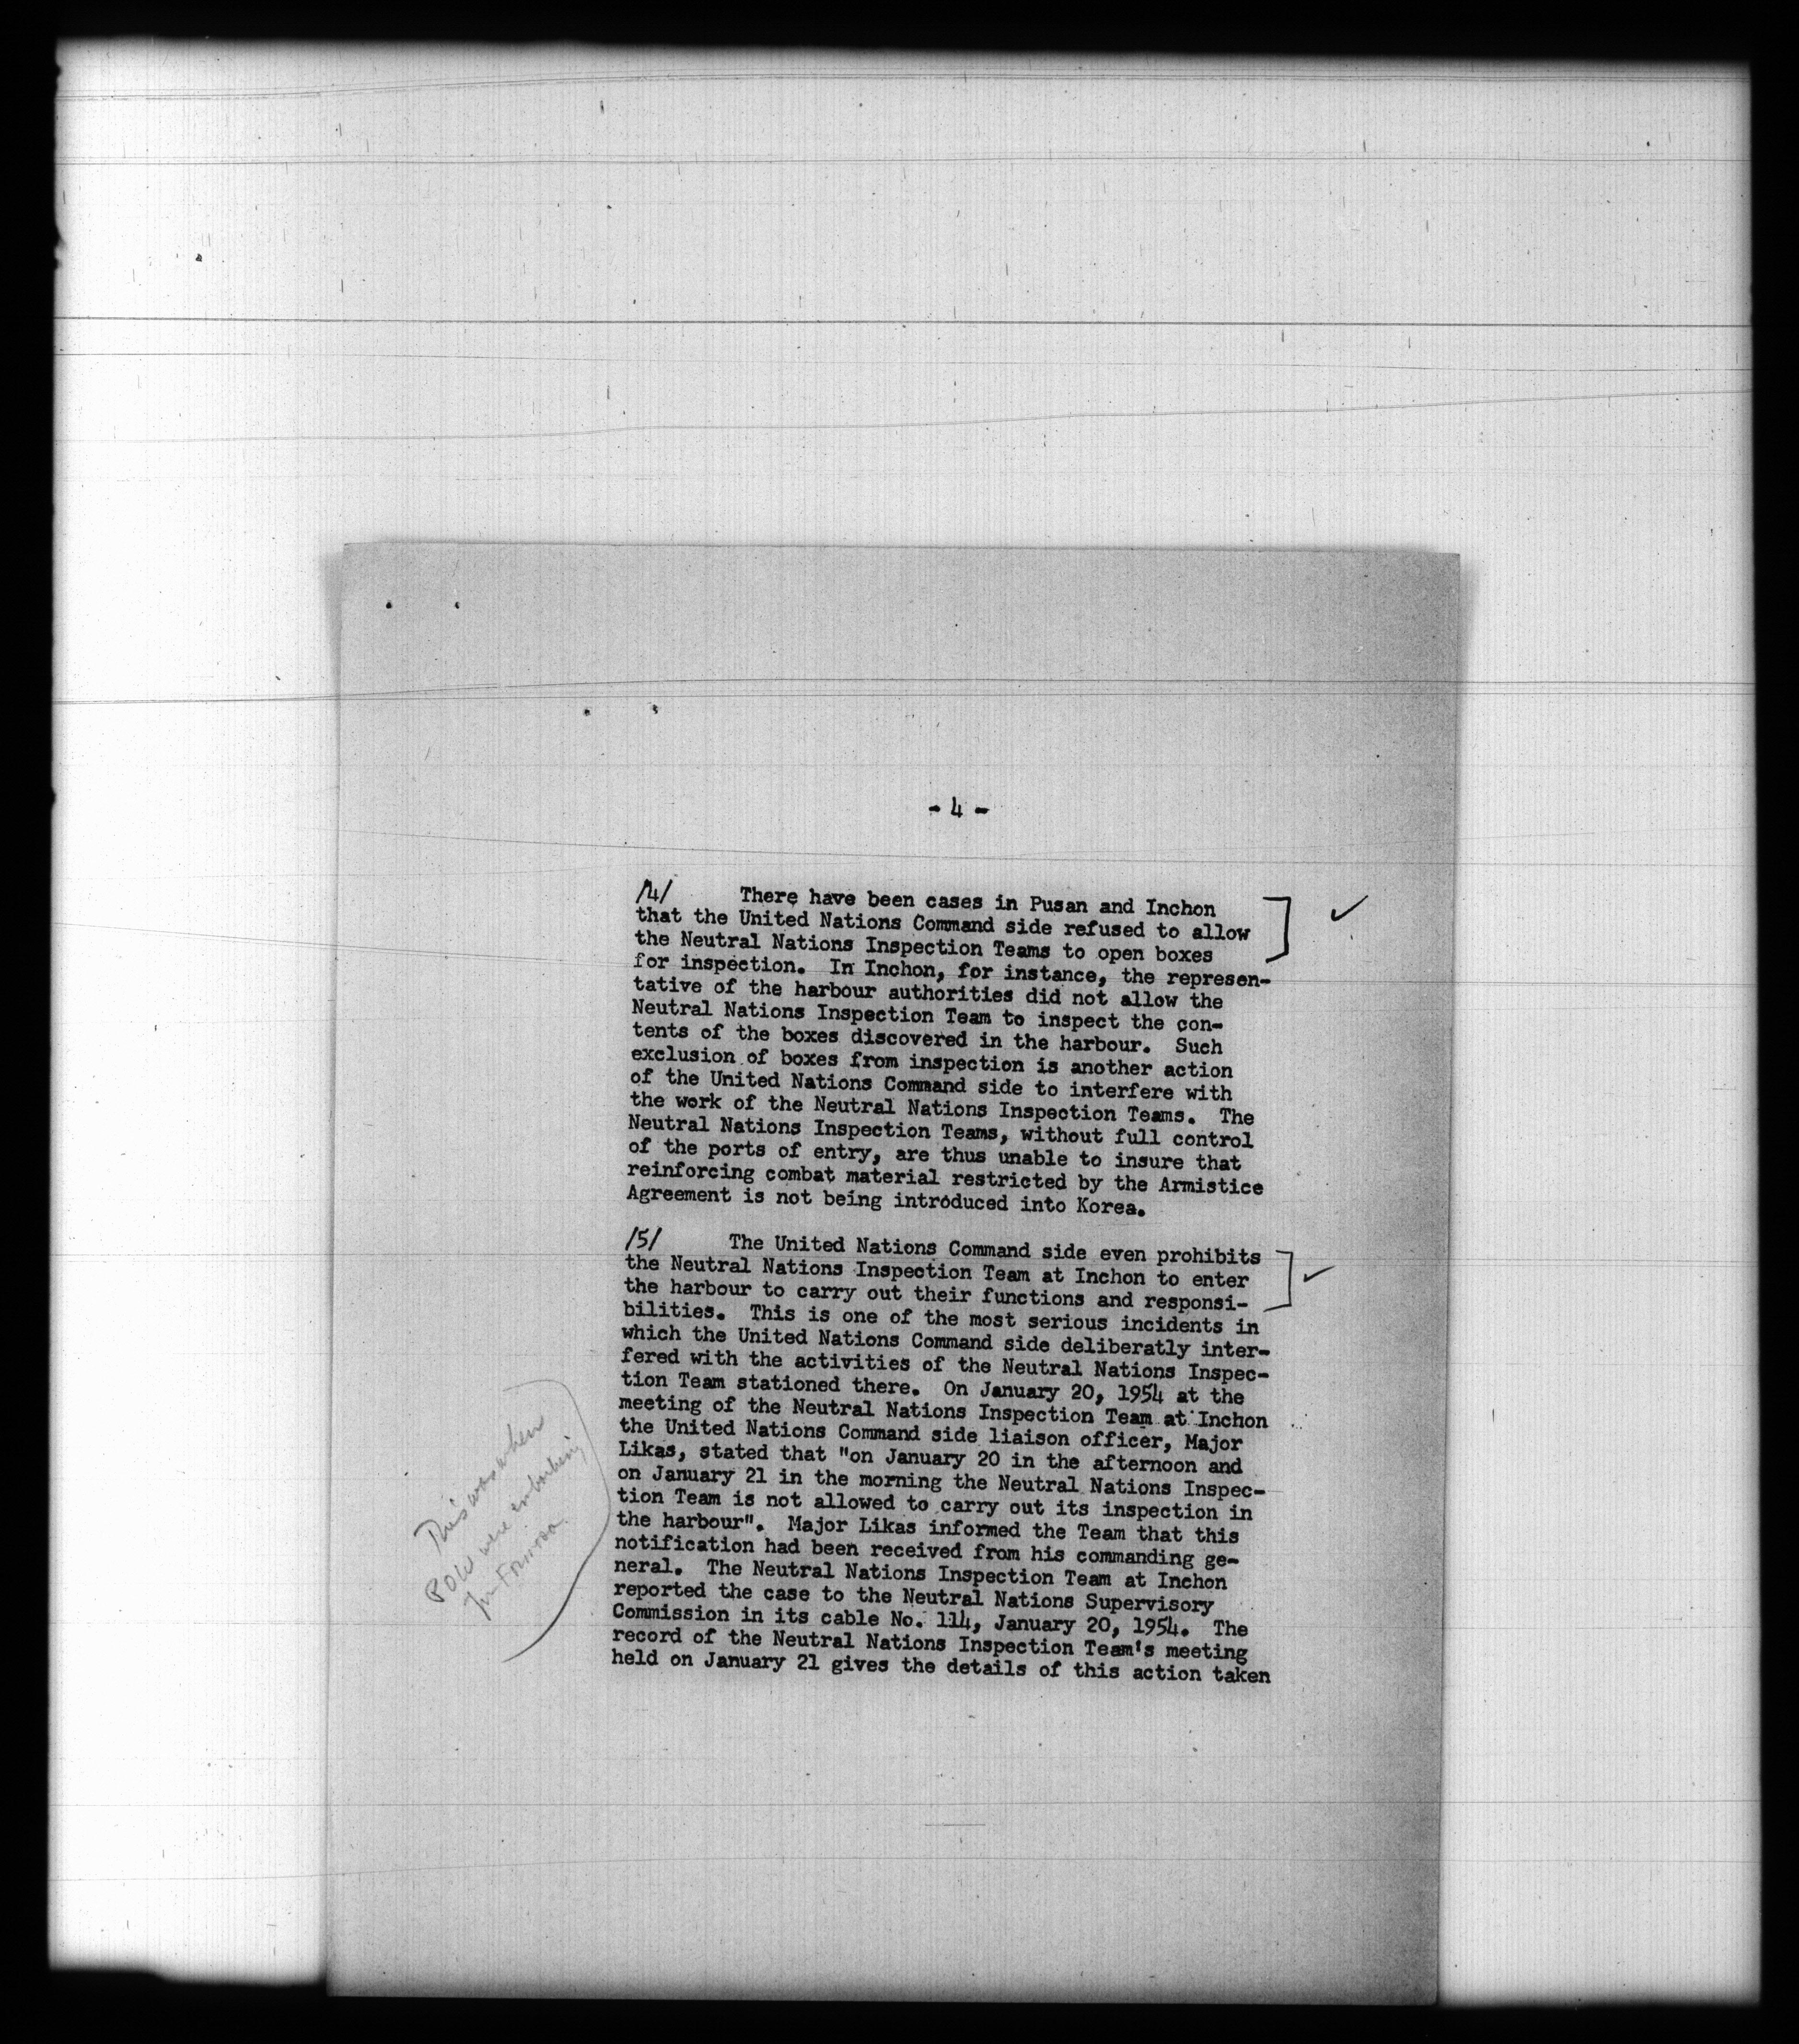 - 4 -
/4/ There have been cases in Pusan and Inchon
that the United Nations Command side refused to allow
the Neutral Nations Inspection Teams to open boxes
for inspection. In Inchon, for instance, the represen-
tative of the harbour authorities did not allow the
Neutral Nations Inspection Team to inspect the con-
tents of the boxes discovered in the harbour. Such
exclusion of boxes from inspection is another action
of the United Nations Command side to interfere with
the work of the Neutral Nations Inspection Teams. The
Neutral Nations Inspection Teams, without full control
of the ports of entry, are thus unable to insure that
reinforcing combat material restricted by the Armistice
Agreement is not being introduced into Korea.
/5/ The United Nations Command side even prohibits
the Neutral Nations Inspection Team at Inchon to enter
the harbour to carry out their functions and responsi-
bilities. This is one of the most serious incidents in
which the United Nations Command side deliberatly inter-
fered with the activities of the Neutral Nations Inspec-
tion Team stationed there. On January 20, 1954 at the
meeting of the Neutral Nations Inspection Team at Inchon
the United Nations Command side liaison officer, Major
Likas, stated that "on January 20 in the afternoon and
on January 21 in the morning the Neutral Nations Inspec-
tion Team is not allowed to carry out its inspection in
the harbour". Major Likas informed the Team that this
notification had been received from his commanding ge-
neral. The Neutral Nations Inspection Team at Inchon
reported the case to the Neutral Nations Supervisory
Commission in its cable No. 114, January 20, 1954. The
record of the Neutral Nations Inspection Team's meeting
held on January 21 gives the details of this action taken
This was when
POW were embarking
for Formosa.